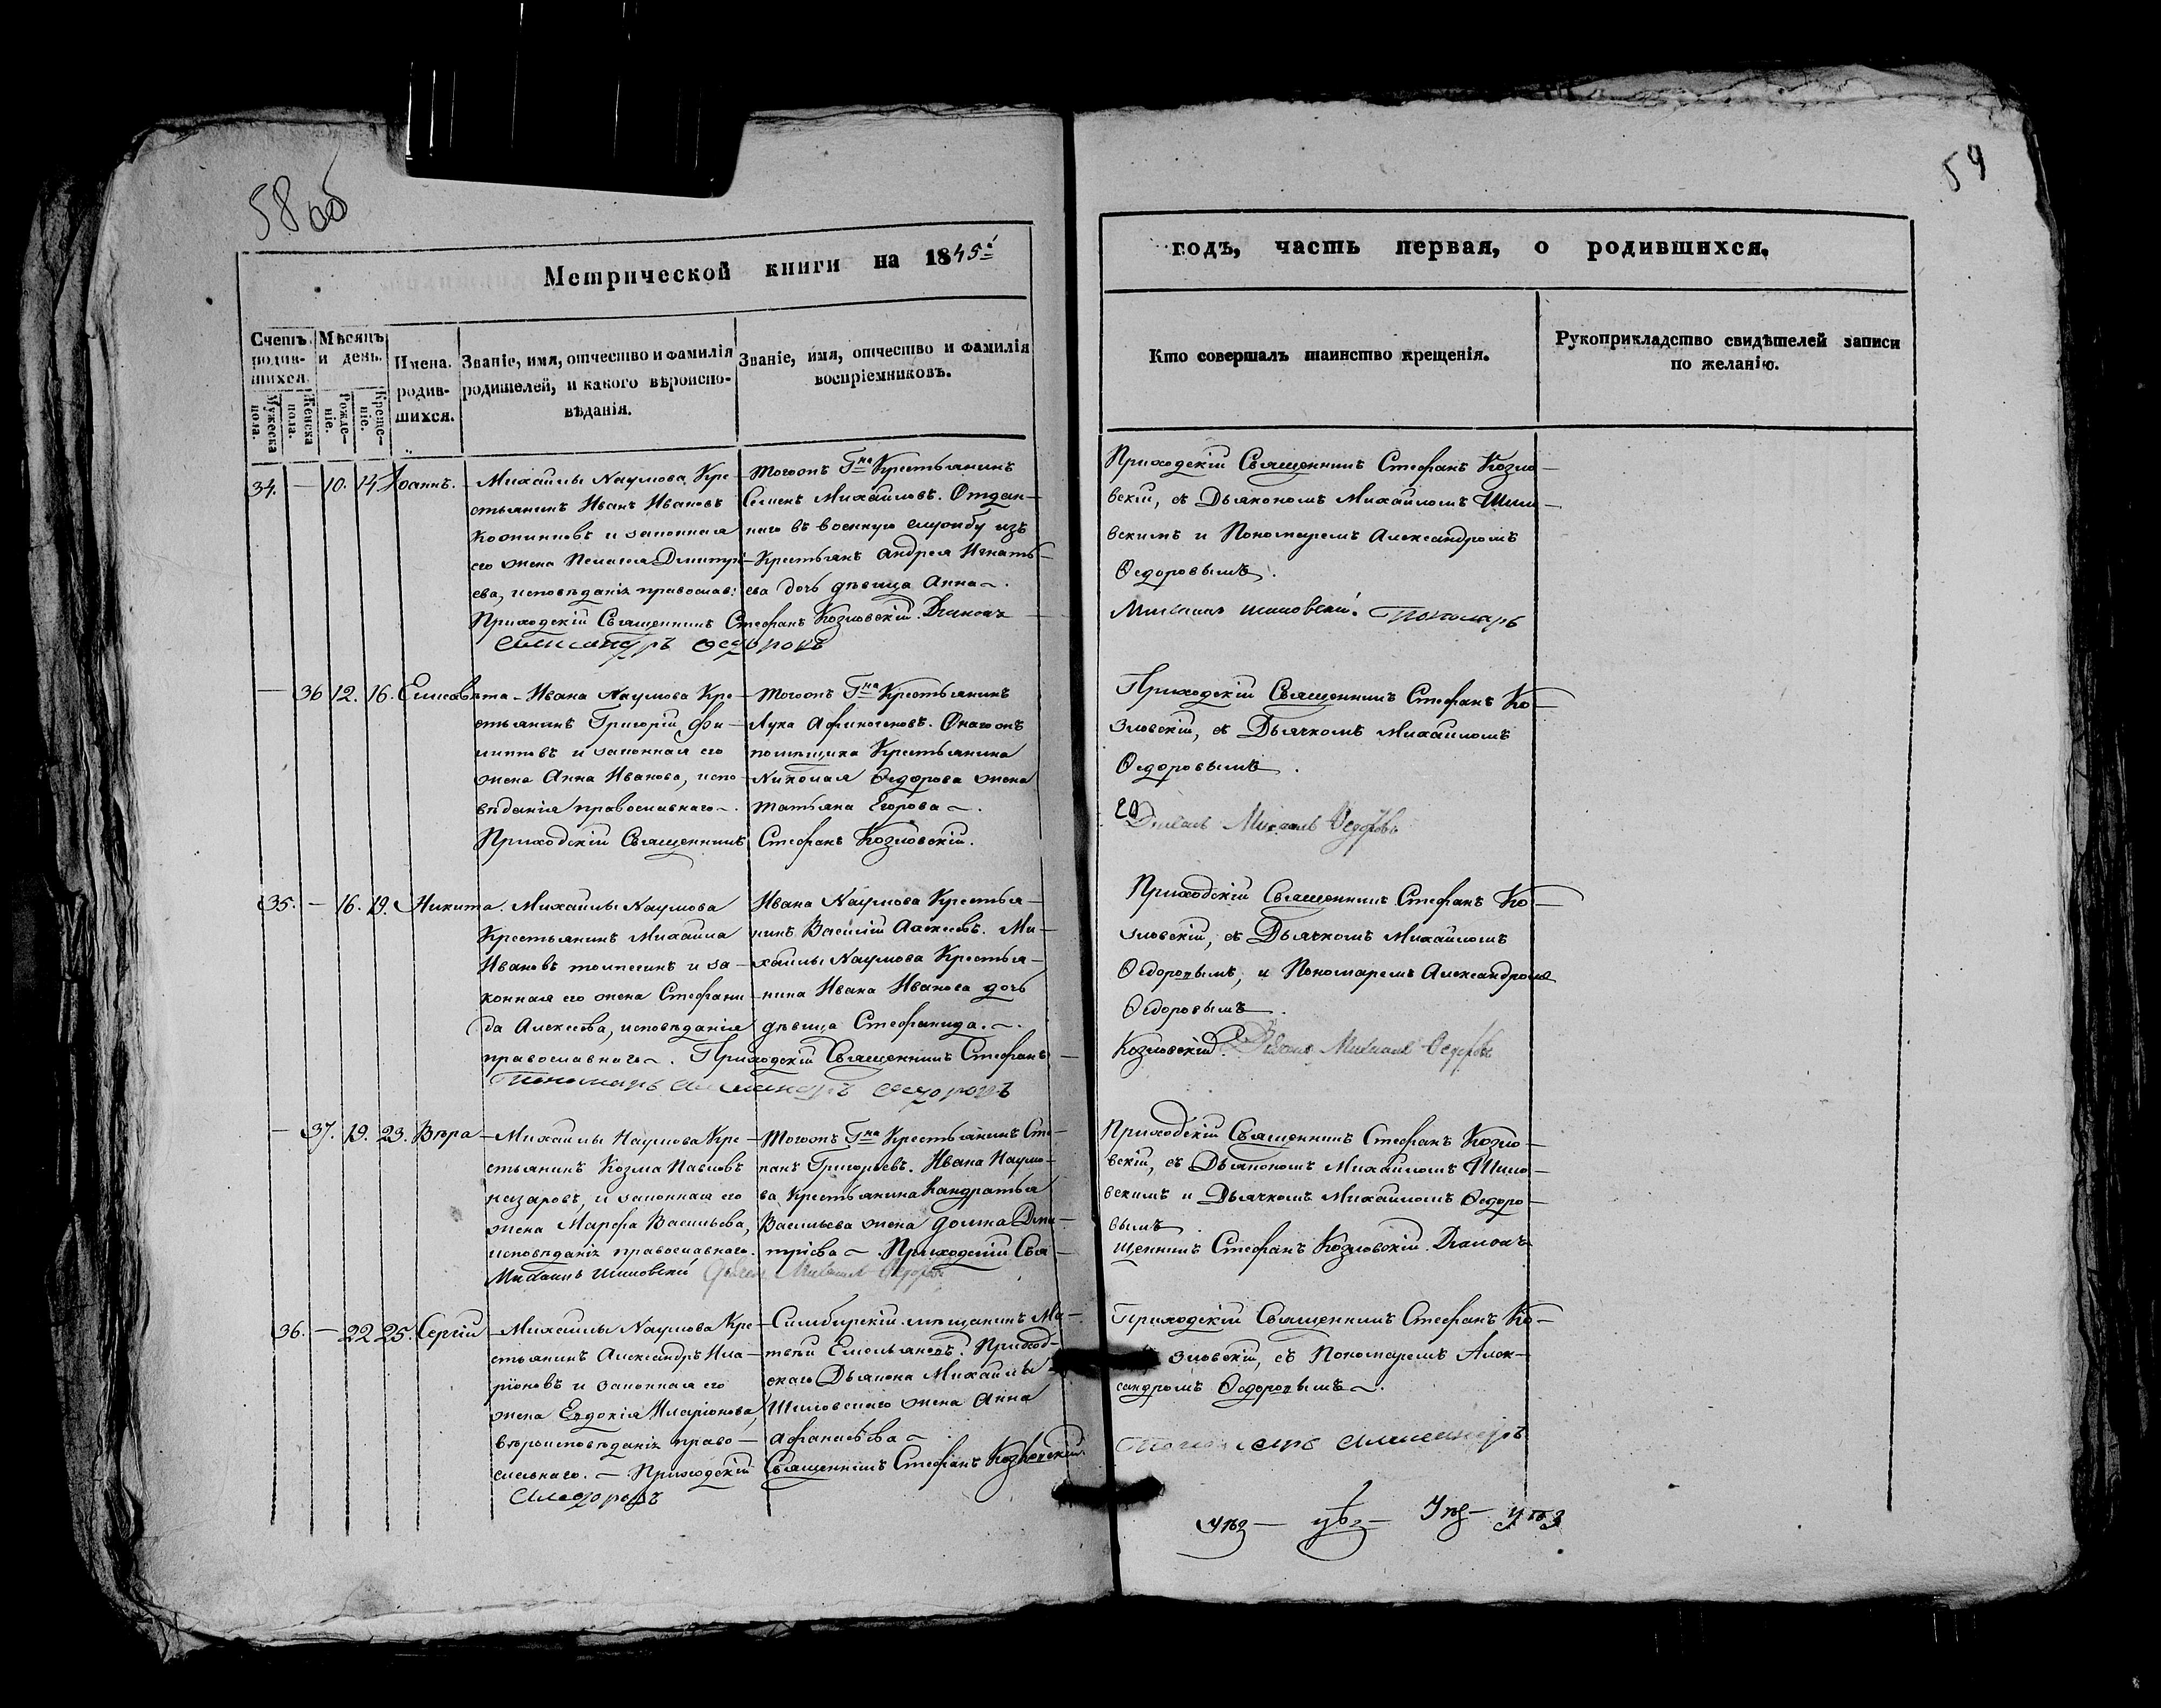 58 об
59
Метрической книги на 1845й
годъ, часть первая, о родившихся.
Счетъ родив-шихся.
Мужеска пола.
Женска пола.
Мѣсяцъ и день.
Рожде-ніе.
Креще-ніе.
Имена родив-шихся.
Званіе, имя, отчество и фамилія родителей, и какого вѣроиспо-вѣданія.
Званіе, имя, отчество и фамилія воспріемниковъ.
Кто совершалъ таинство крещенія.
Рукоприкладство свидѣтелей записи по желанію.
34. — 10. 14 Іоаннъ.
Михайлы Наумова Кре-
стьянинъ Иванъ Ивановъ
и законная
его жена Пелагея Дмитрі-
ева, исповѣданія православ:
Тогожъ Гна Крестьянинъ
Семенъ Михайловъ. Отдан-
наго въ военную службу изъ
Крестьянъ Андрея Игнать-
ева дочь дѣвица Анна.
Приходскій Священникъ Стефанъ Козловскій. Діаконъ
Александръ Ѳедоровъ
Приходскій Священникъ Стефанъ Козло-
вскій, съ Дьякономъ Михайломъ Шило-
вскимъ и Пономаремъ Александромъ
Ѳедоровымъ.
Михаилъ Шиловскій. Пономарь
— 36 12. 16. Елисавета
Ивана Наумова Кре-
стьянинъ Григорій Фи-
липповъ и законная его
жена Анна Иванова, испо-
вѣданія православнаго.
Тогожъ Гна Крестьянинъ
Лука Афиногеновъ. Онагожъ
помѣщика Крестьянина
Николая Ѳедорова жена
Татьяна Егорова.
Приходскій Священникъ Стефанъ Козловскій.
Приходскій Священникъ Стефанъ Ко-
зловскій, съ Дьячкомъ Михайломъ
Ѳедоровымъ.
Михаилъ Ѳедоровъ
35. — 16. 19. Никита.
Михайлы Наумова
Крестьянинъ Михайла
Ивановъ и за-
конная его жена Стефани-
да Алексѣева, исповѣданія
православнаго. Приходскій Священникъ Стефанъ
Пономарь Александръ Ѳедоровъ
Ивана Наумова Крестья-
нинъ Василій Алексѣевъ. Ми-
хайлы Наумова Крестья-
нина Ивана Иванова дочь
дѣвица Стефанида.
Приходскій Священникъ Стефанъ Ко-
зловскій, съ Дьячкомъ Михайломъ
Ѳедоровымъ, и Пономаремъ Александромъ
Ѳедоровымъ.
Козловскій. Михаилъ Ѳедоровъ
— 37. 19. 23. Вѣра
Михайлы Наумова Кре-
стьянинъ Козма Павловъ
Назаровъ, и законная его
жена Марфа Васильева,
исповѣданія православнаго.
Михаилъ Шиловскій Михаилъ Ѳедоровъ
Тогожъ Гна Крестьянинъ Сте-
панъ Григорьевъ. Ивана Наумо-
ва Крестьянина Кандратья
Васильева жена Домна Дми-
тріева. Приходскій Свя-
Приходскій Священникъ Стефанъ Козло-
вскій, съ Дьякономъ Михайломъ Шило-
вскимъ и Дьячкомъ Михайломъ Ѳедоро-
вымъ
щенникъ Стефанъ Козловскій. Діаконъ
36. — 22 25. Сергій
Михайлы Наумова Кре-
стьянинъ Александръ Ила-
ріоновъ и законная его
жена Евдокія Иларіонова,
вѣроисповѣданія право-
славнаго. Приходскій Священникъ Стефанъ Козловскій
Ѳедоровъ
Симбирскій мѣщанинъ Ма-
твѣй Емельяновъ. Приход-
скаго Дьякона Михайлы
Шиловскаго жена Анна
Афанасьева
Приходскій Священникъ Стефанъ Ко-
зловскій, съ Пономаремъ Алек-
сандромъ Ѳедоровымъ.
Пономарь Александръ